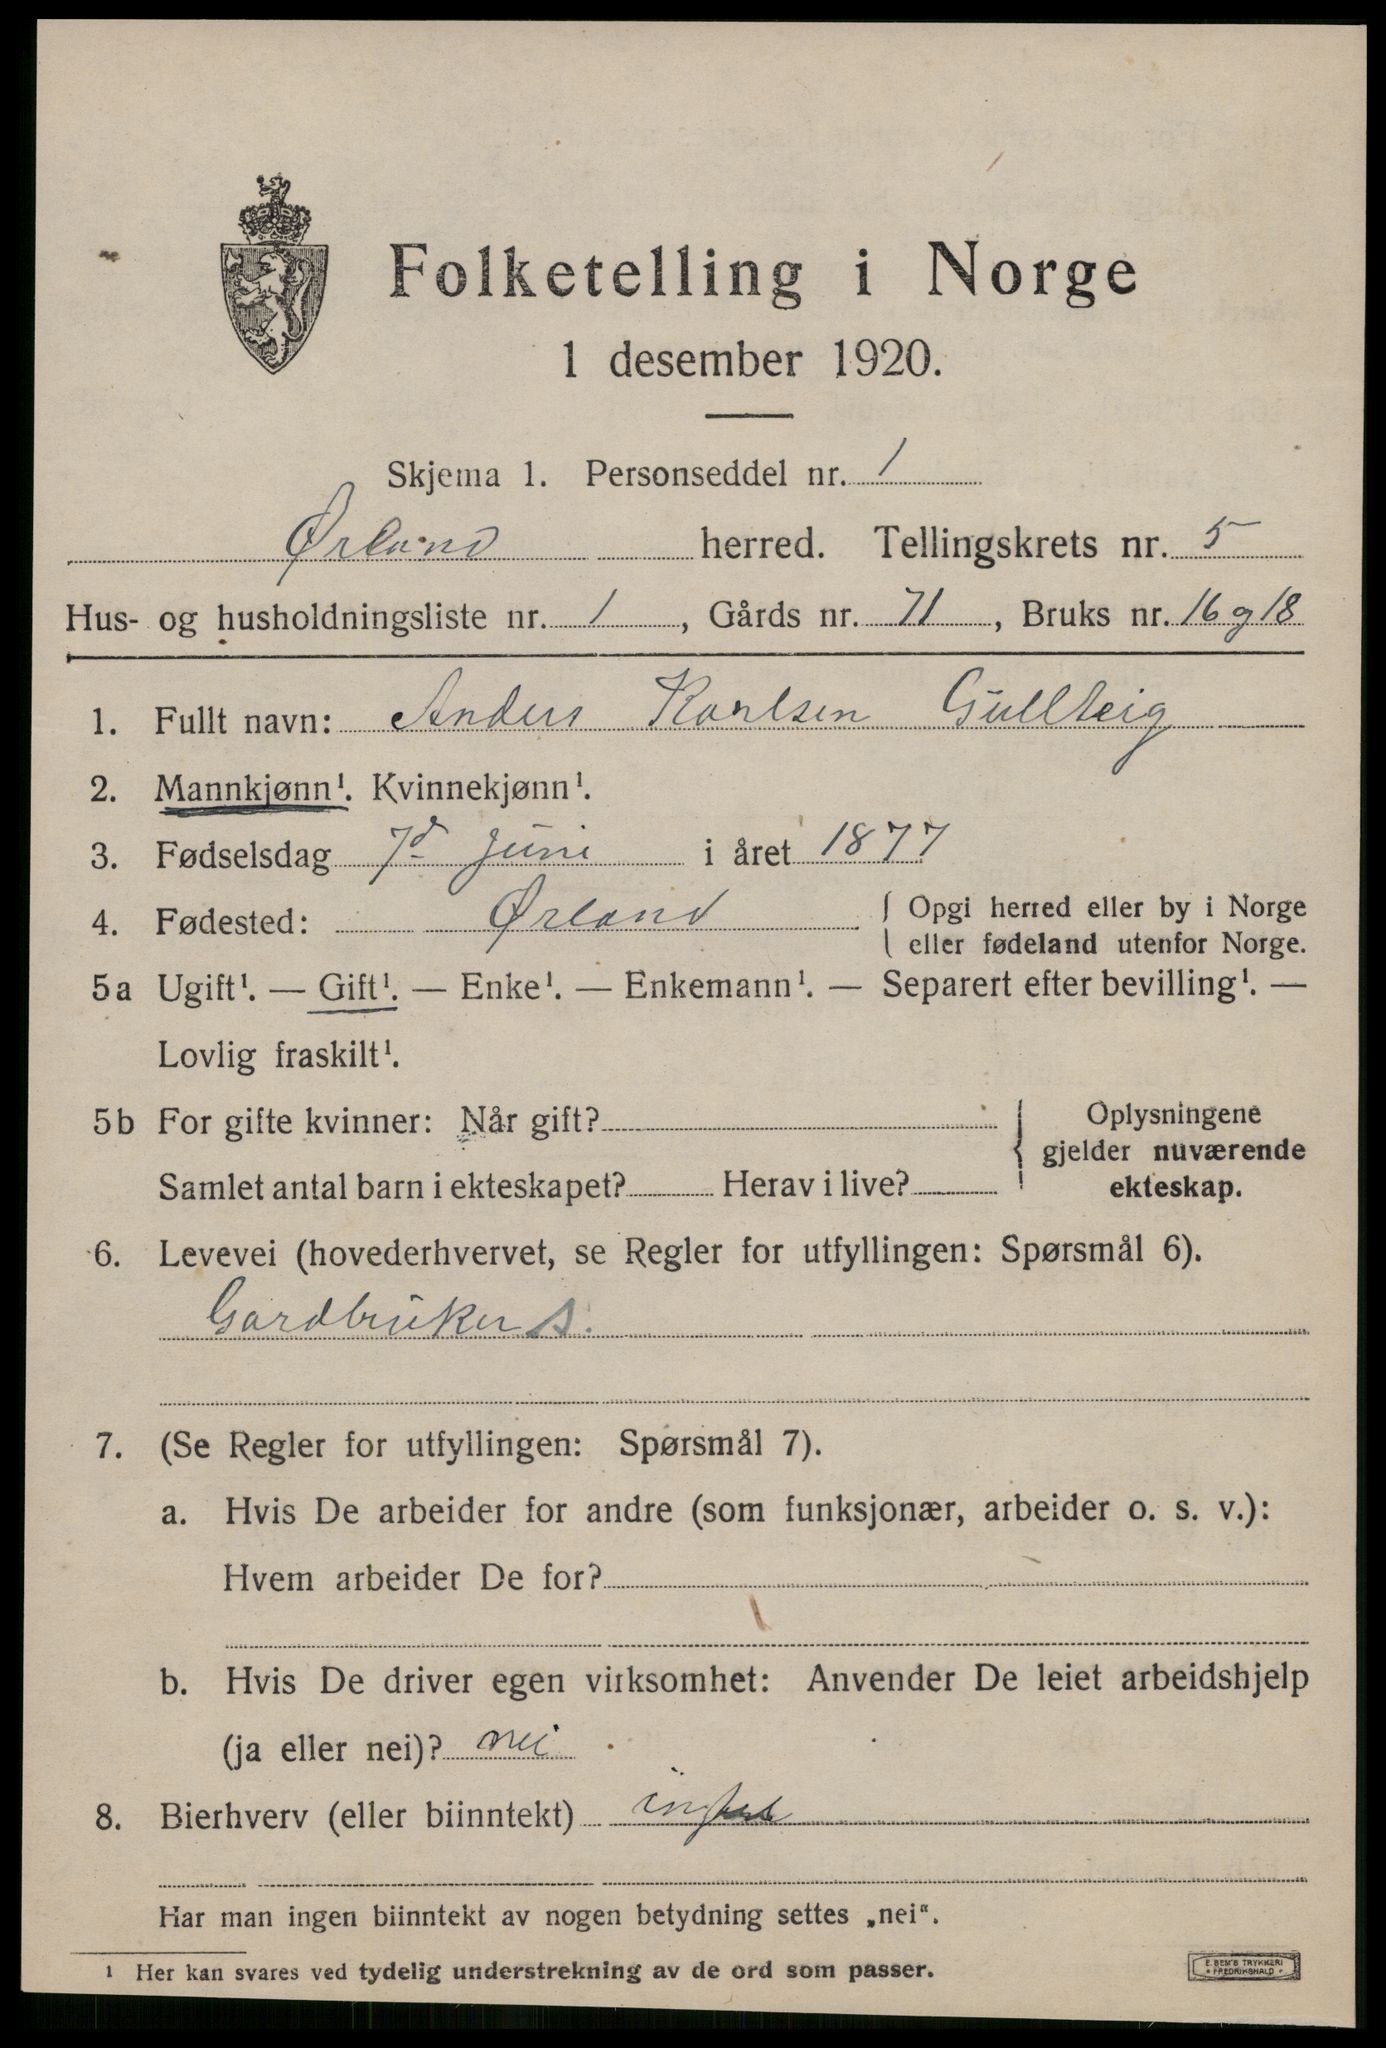 Folketelling i Norge
1 desember 1920.
Skjema 1. Personseddel nr. 1
Ørland herred. Tellingskrets nr. 5
Hus- og husholdningsliste nr. 1, Gårds nr. 71, Bruks nr. 16 og 18
1. Fullt navn: Anders Karlsen Gullteig
2. Mannkjønn¹. Kvinnekjønn¹.
3. Fødselsdag 7d Juni i året 1877
4. Fødested: Ørland { Opgi herred eller by i Norge
eller fødeland utenfor Norge.
5a Ugift¹. — Gift¹. — Enke¹. — Enkemann¹. — Separert efter bevilling¹. —
Lovlig fraskilt¹.
5b For gifte kvinner: Når gift? { Oplysningene
gjelder nuværende
Samlet antal barn i ekteskapet? Herav i live? ekteskap.
6. Levevei (hovederhvervet, se Regler for utfyllingen: Spørsmål 6).
Gardbruker S.
7. (Se Regler for utfyllingen: Spørsmål 7).
a. Hvis De arbeider for andre (som funksjonær, arbeider o. s. v.):
Hvem arbeider De for?
b. Hvis De driver egen virksomhet: Anvender De leiet arbeidshjelp
(ja eller nei)? nei
8. Bierhverv (eller biinntekt)
Har man ingen biinntekt av nogen betydning settes „nei".
¹ Her kan svares ved tydelig understrekning av de ord som passer.
E. SEM'S TRYKKERI
• FREDRIKSHALD •